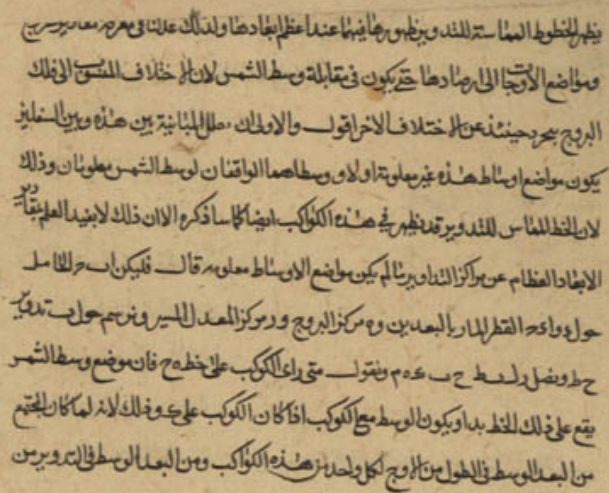 يظهر الخطوط المماسة للتدوير يظهورها فيهما عند اعظم ابعادها ولذلك عدلنا في معرفة مقادير
ومواضع الاوجات الى ارصادها حتى يكون في مقابلة وسط الشمس لان الاختلاف المنسوب الى فلك
البروج يتجرد حينئذ عن الاختلاف الاخر اقول والاولى ان يعلل المباينة بين هذه وبين السفليين
يكون مواضع اوساط هذه غير معلومة اولا ووسطاهما الواقفان لوسط الشمس معلومان وذلك
لان الخط المماس للتدوير قد يظهر في هذه الكواكب ايضا كما سنذكره الا ان ذلك لا يفيد العلم بمقادير
الابعاد العظام عن مراكز التداوير ما لم يكن مواضع الاوساط معلومة قال فليكن اب ح الحامل
حول د و ا د ح القطر المار بالبعدين و ه مركز البروج و ر مركز المعدل للمسير ونرسم حول ب تدوير
ح ط ونصل ر ط ح ب ه م ونقول متى راى الكوكب على خط ه ح فان موضع وسط الشمس
يقع على ذلك الخط بدا ويكون الوسط مع الكوكب اذا كان الكوكب على ح وذلك لانه لما كان المجتمع
من البعد الوسط في الطول من الاوج لكل واحد من هذه الكواكب ومن البعد الوسط في التدوير من